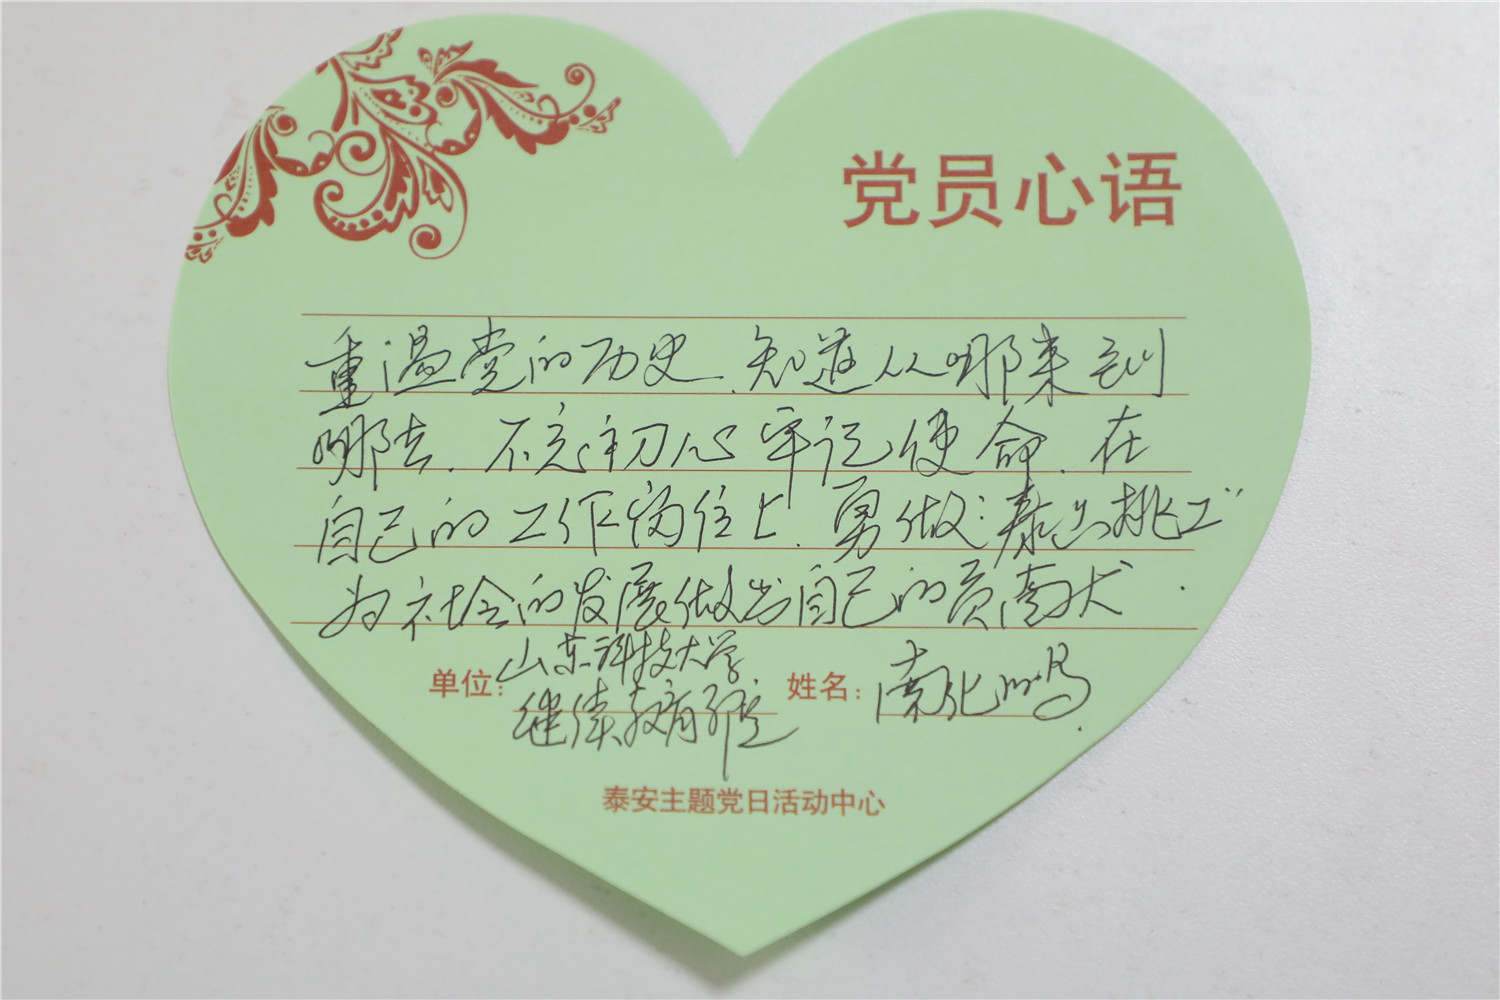 党员心语
重温党的历史、知道从哪来到
哪去、不忘初心牢记使命、在
自己的工作岗位上、勇做“泰山挑工”
为社会的发展做出自己的贡献.
单位:山东科技大学
继续教育学院
姓名:南化鸣.
泰安主题党日活动中心